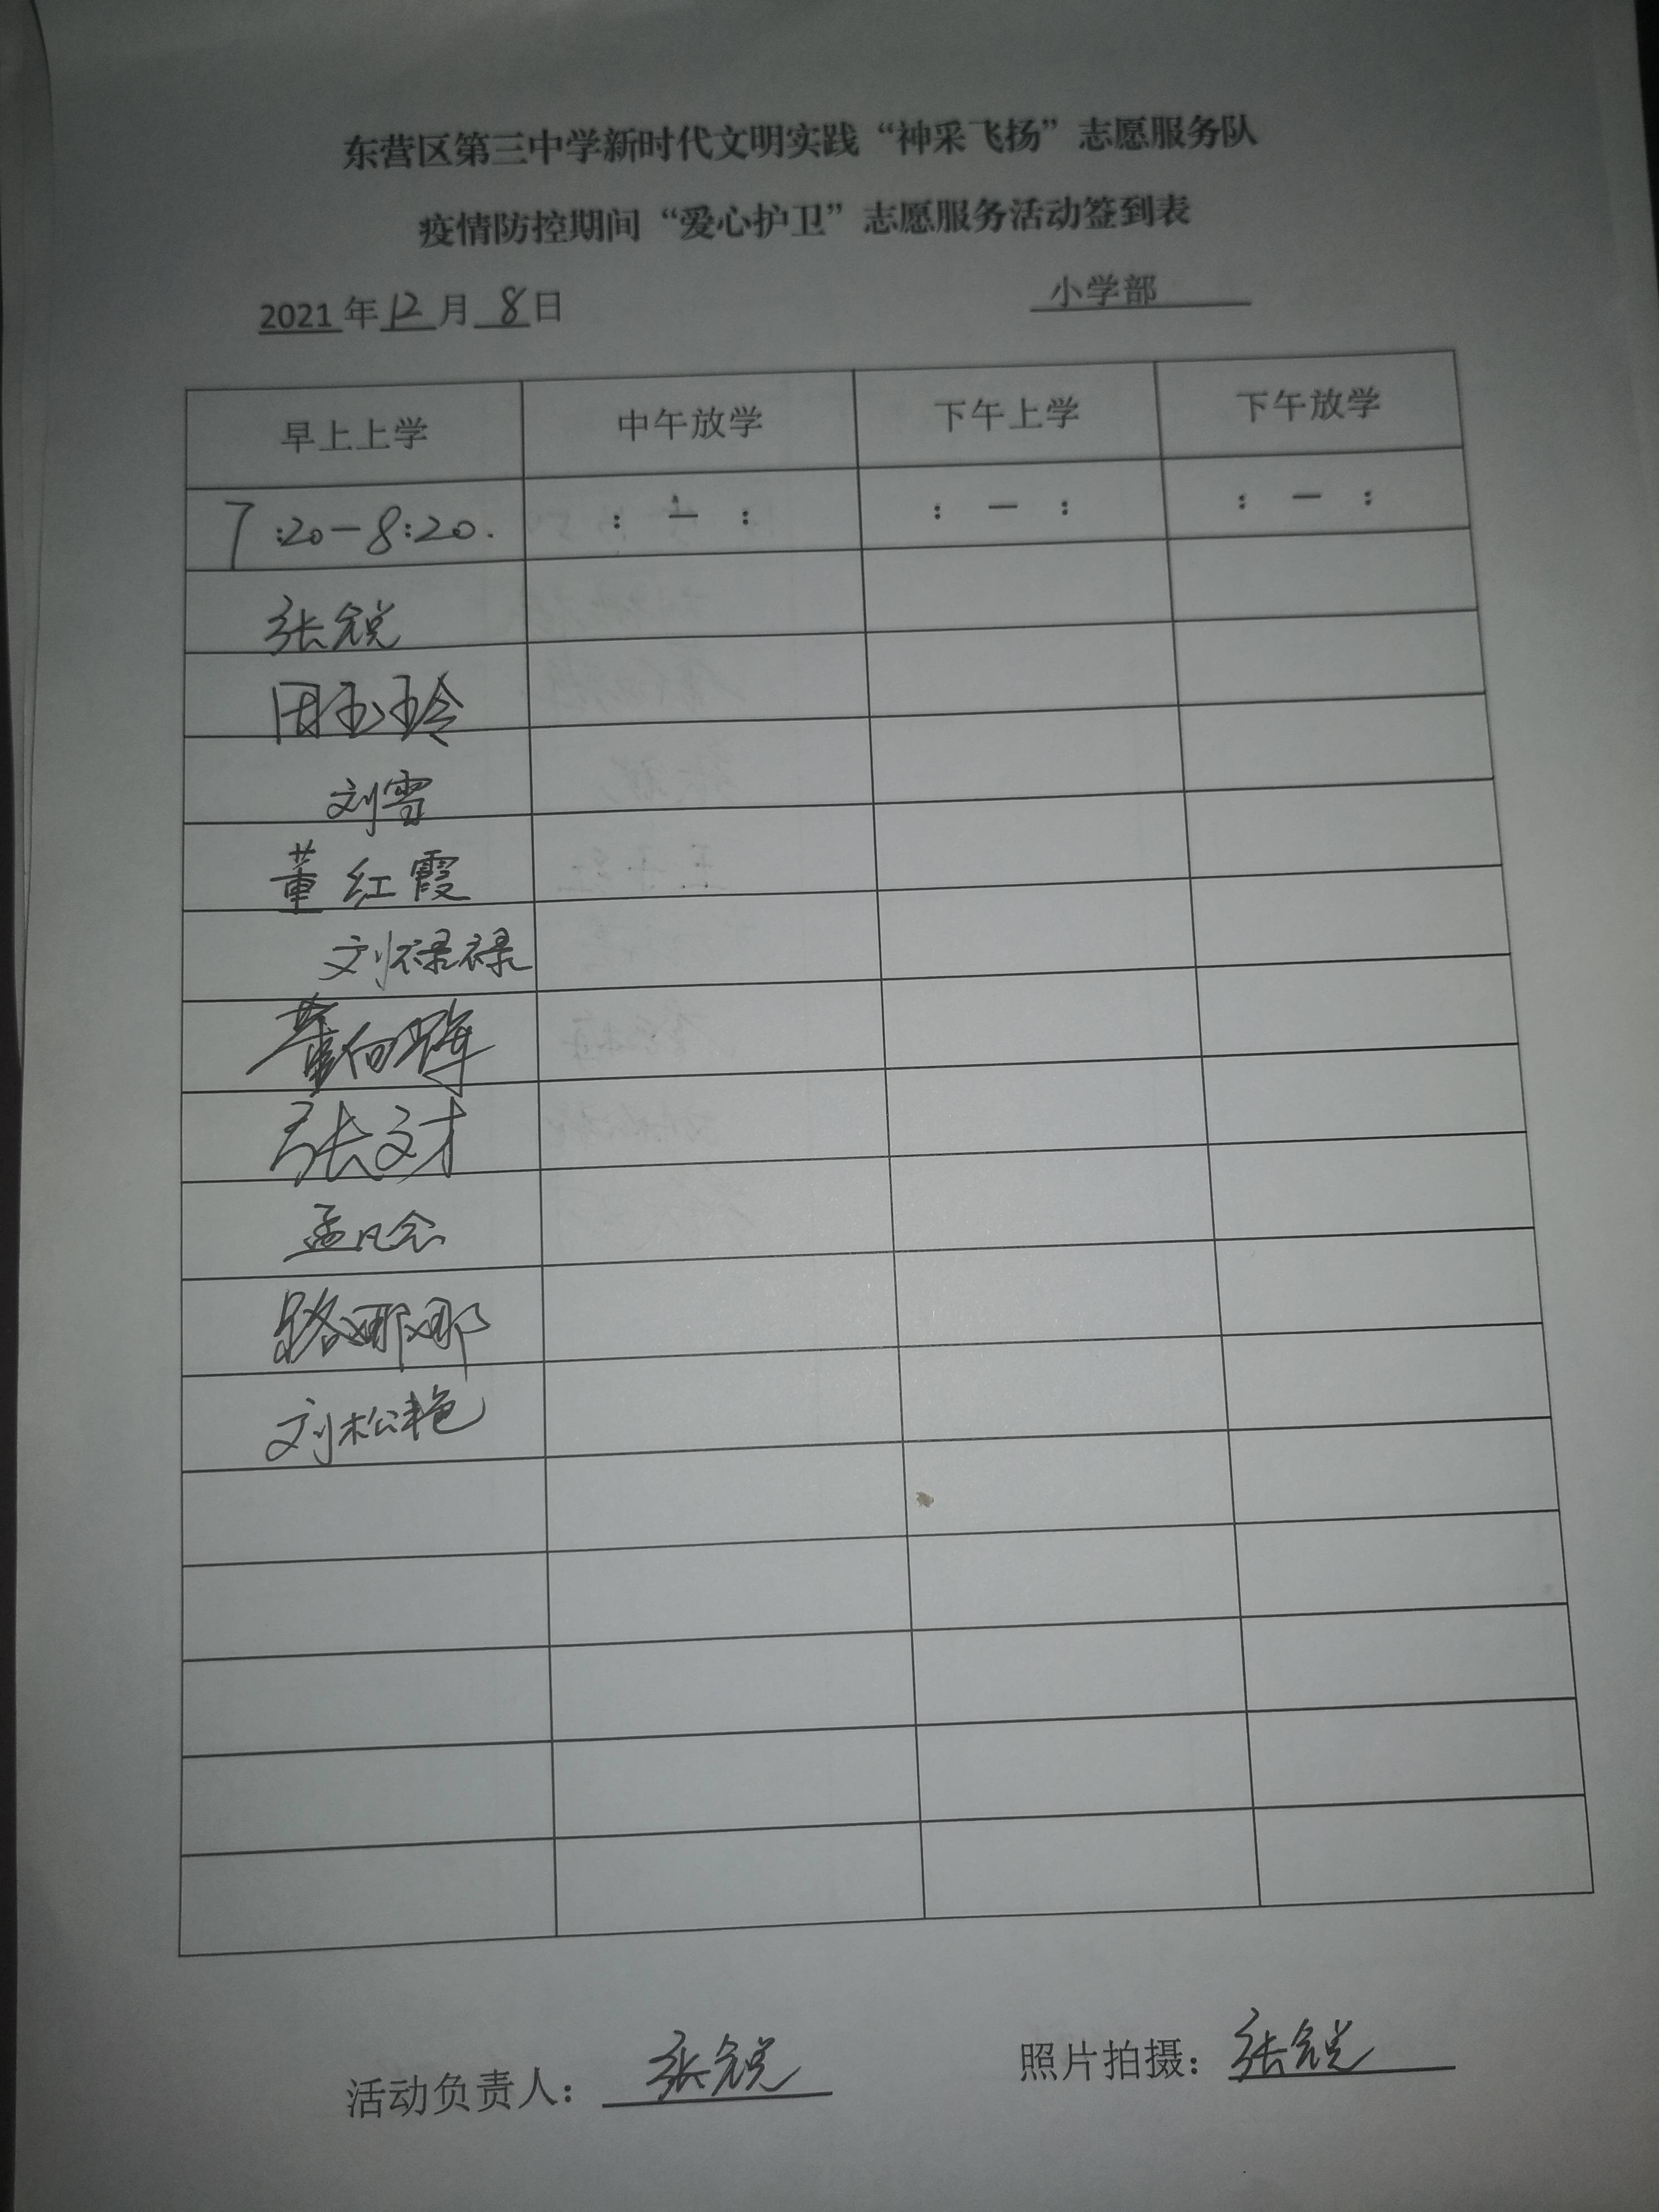 东营区第三中学新时代文明实践“神采飞扬”志愿服务队
疫情防控期间“爱心护卫”志愿服务活动签到表
2021年12月8日 小学部
早上上学 中午放学 下午上学 下午放学
7:20-8:20. : — : : — : : — :
张锐
周玉玲
刘雪
董红霞
刘禄禄
董向晖
张文才
孟凡念
路娜娜
刘松艳
活动负责人：张锐 照片拍摄：张锐